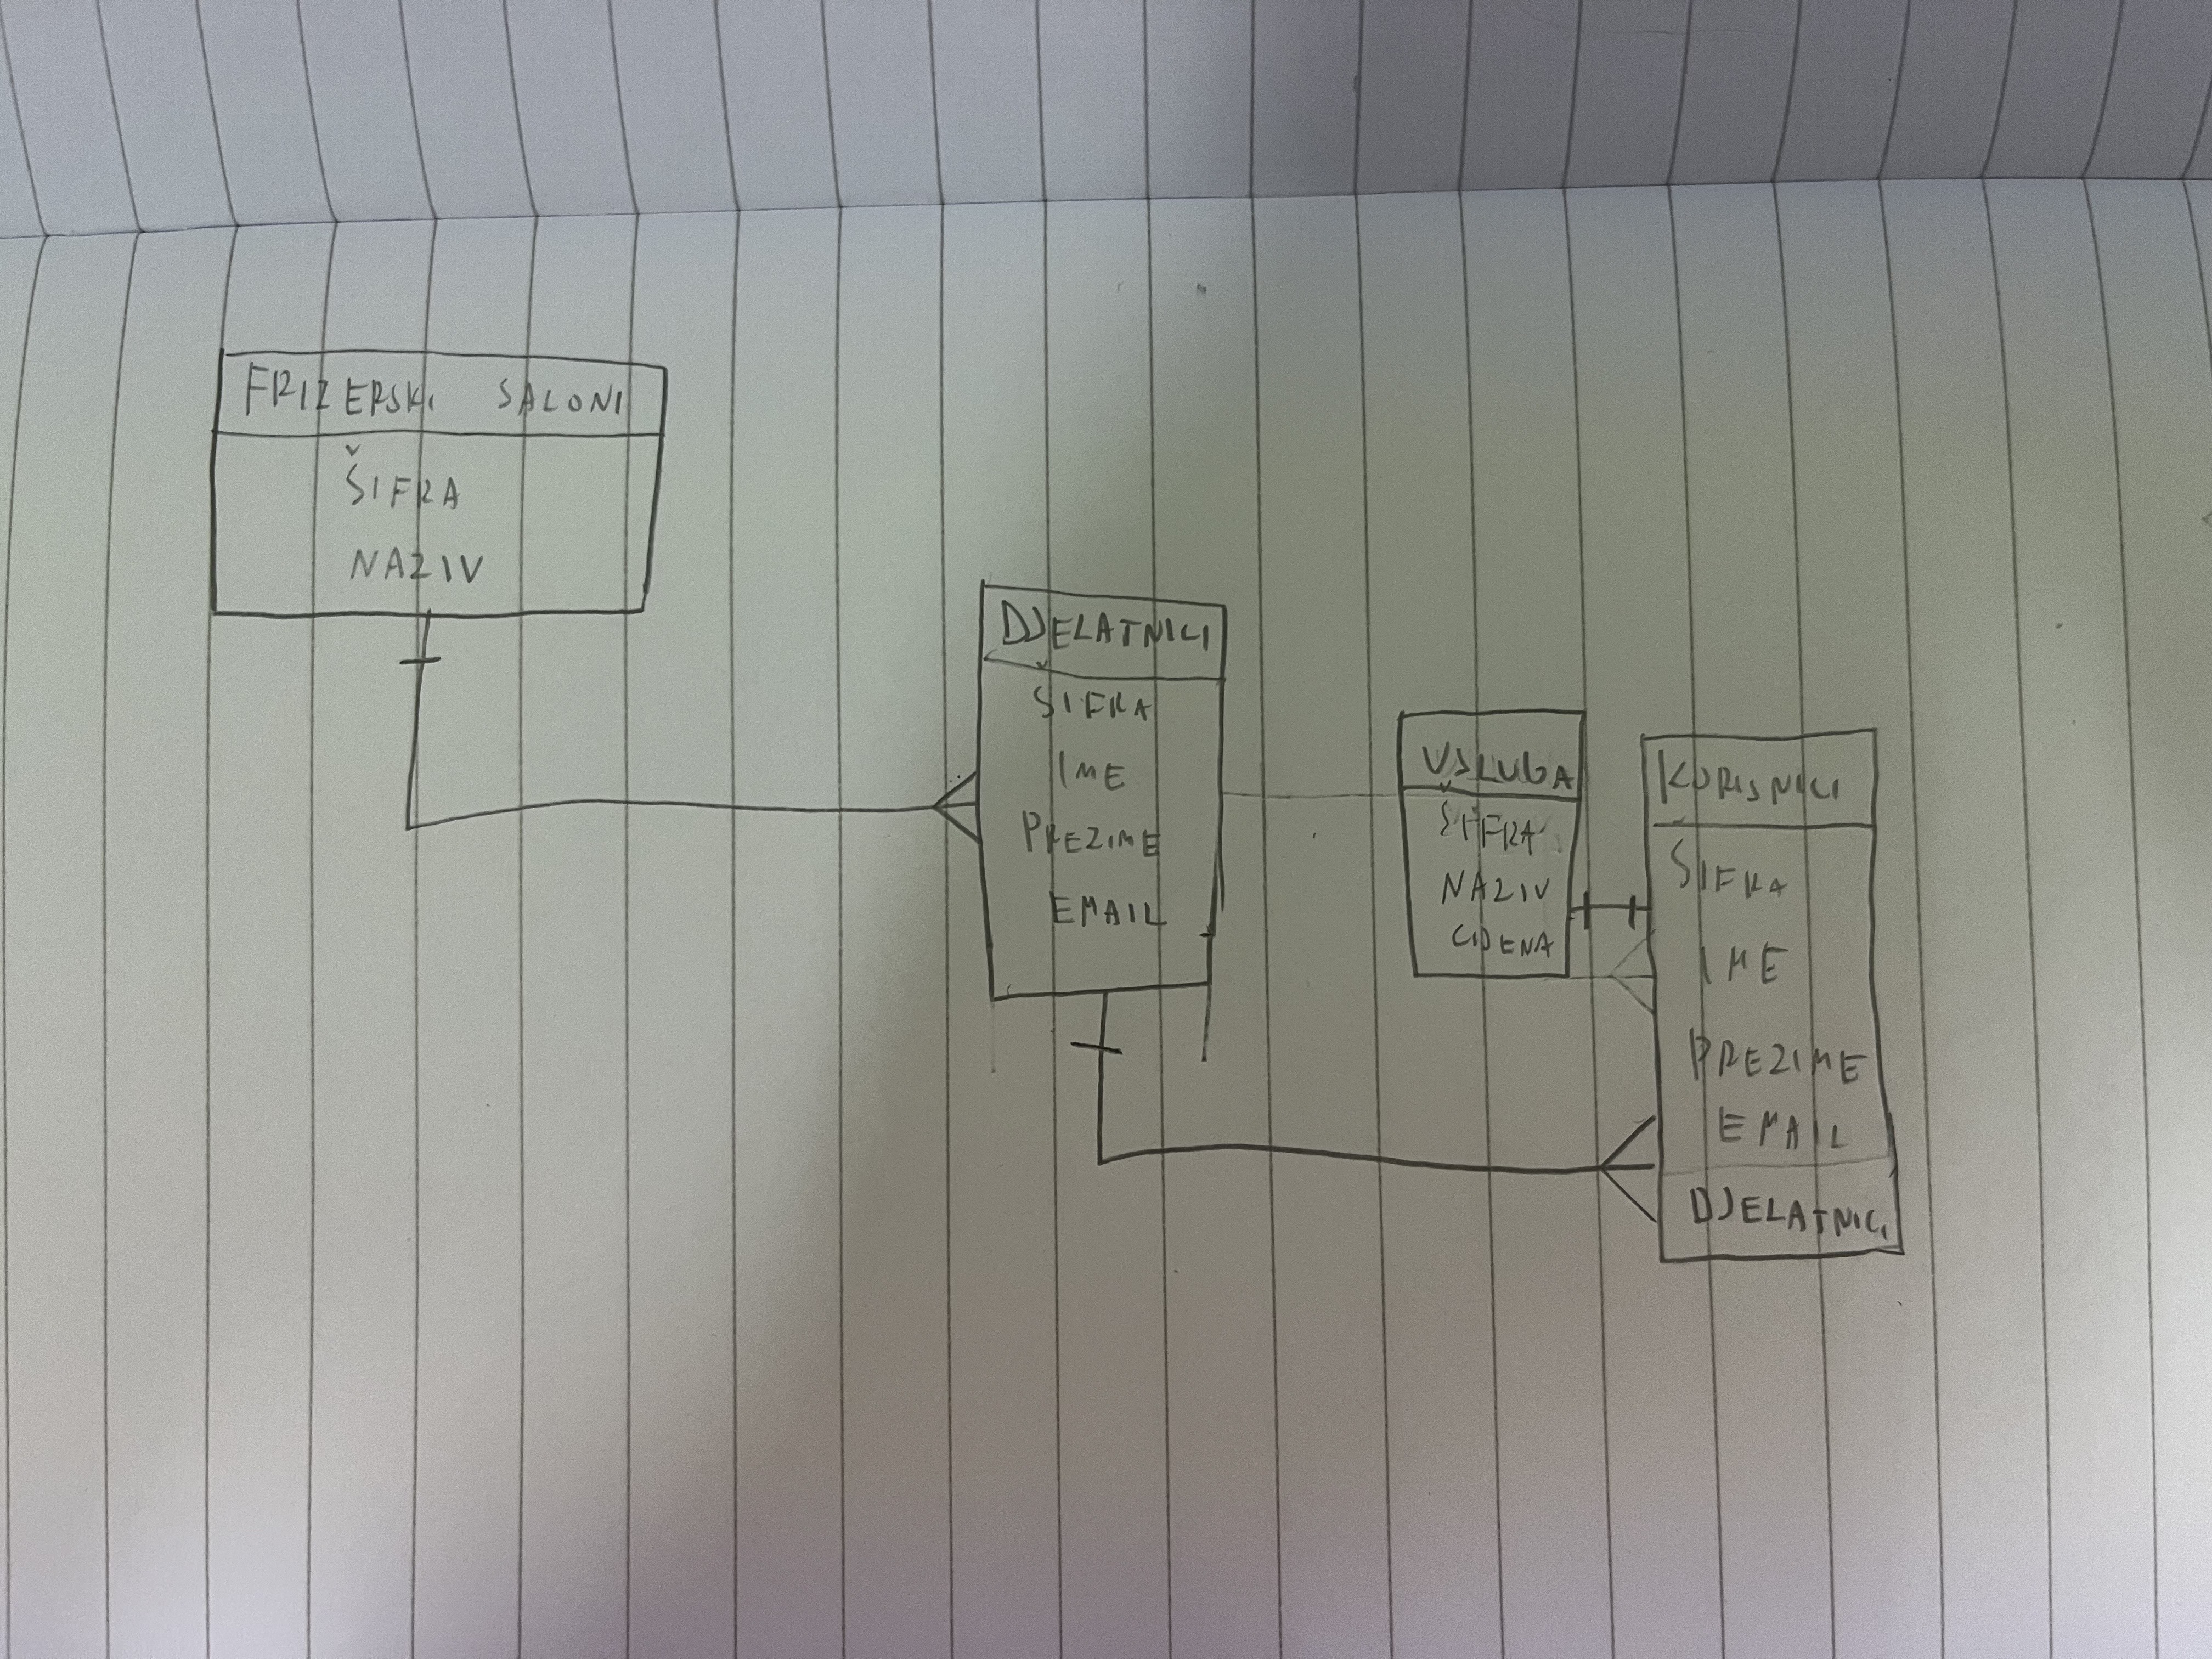 FRIZERSKI SALONI
ŠIFRA
NAZIV
DJELATNICI
ŠIFRA
IME
PREZIME
EMAIL
USLUGA
ŠIFRA
NAZIV
CIJENA
KORISNICI
ŠIFRA
IME
PREZIME
EMAIL
DJELATNICI